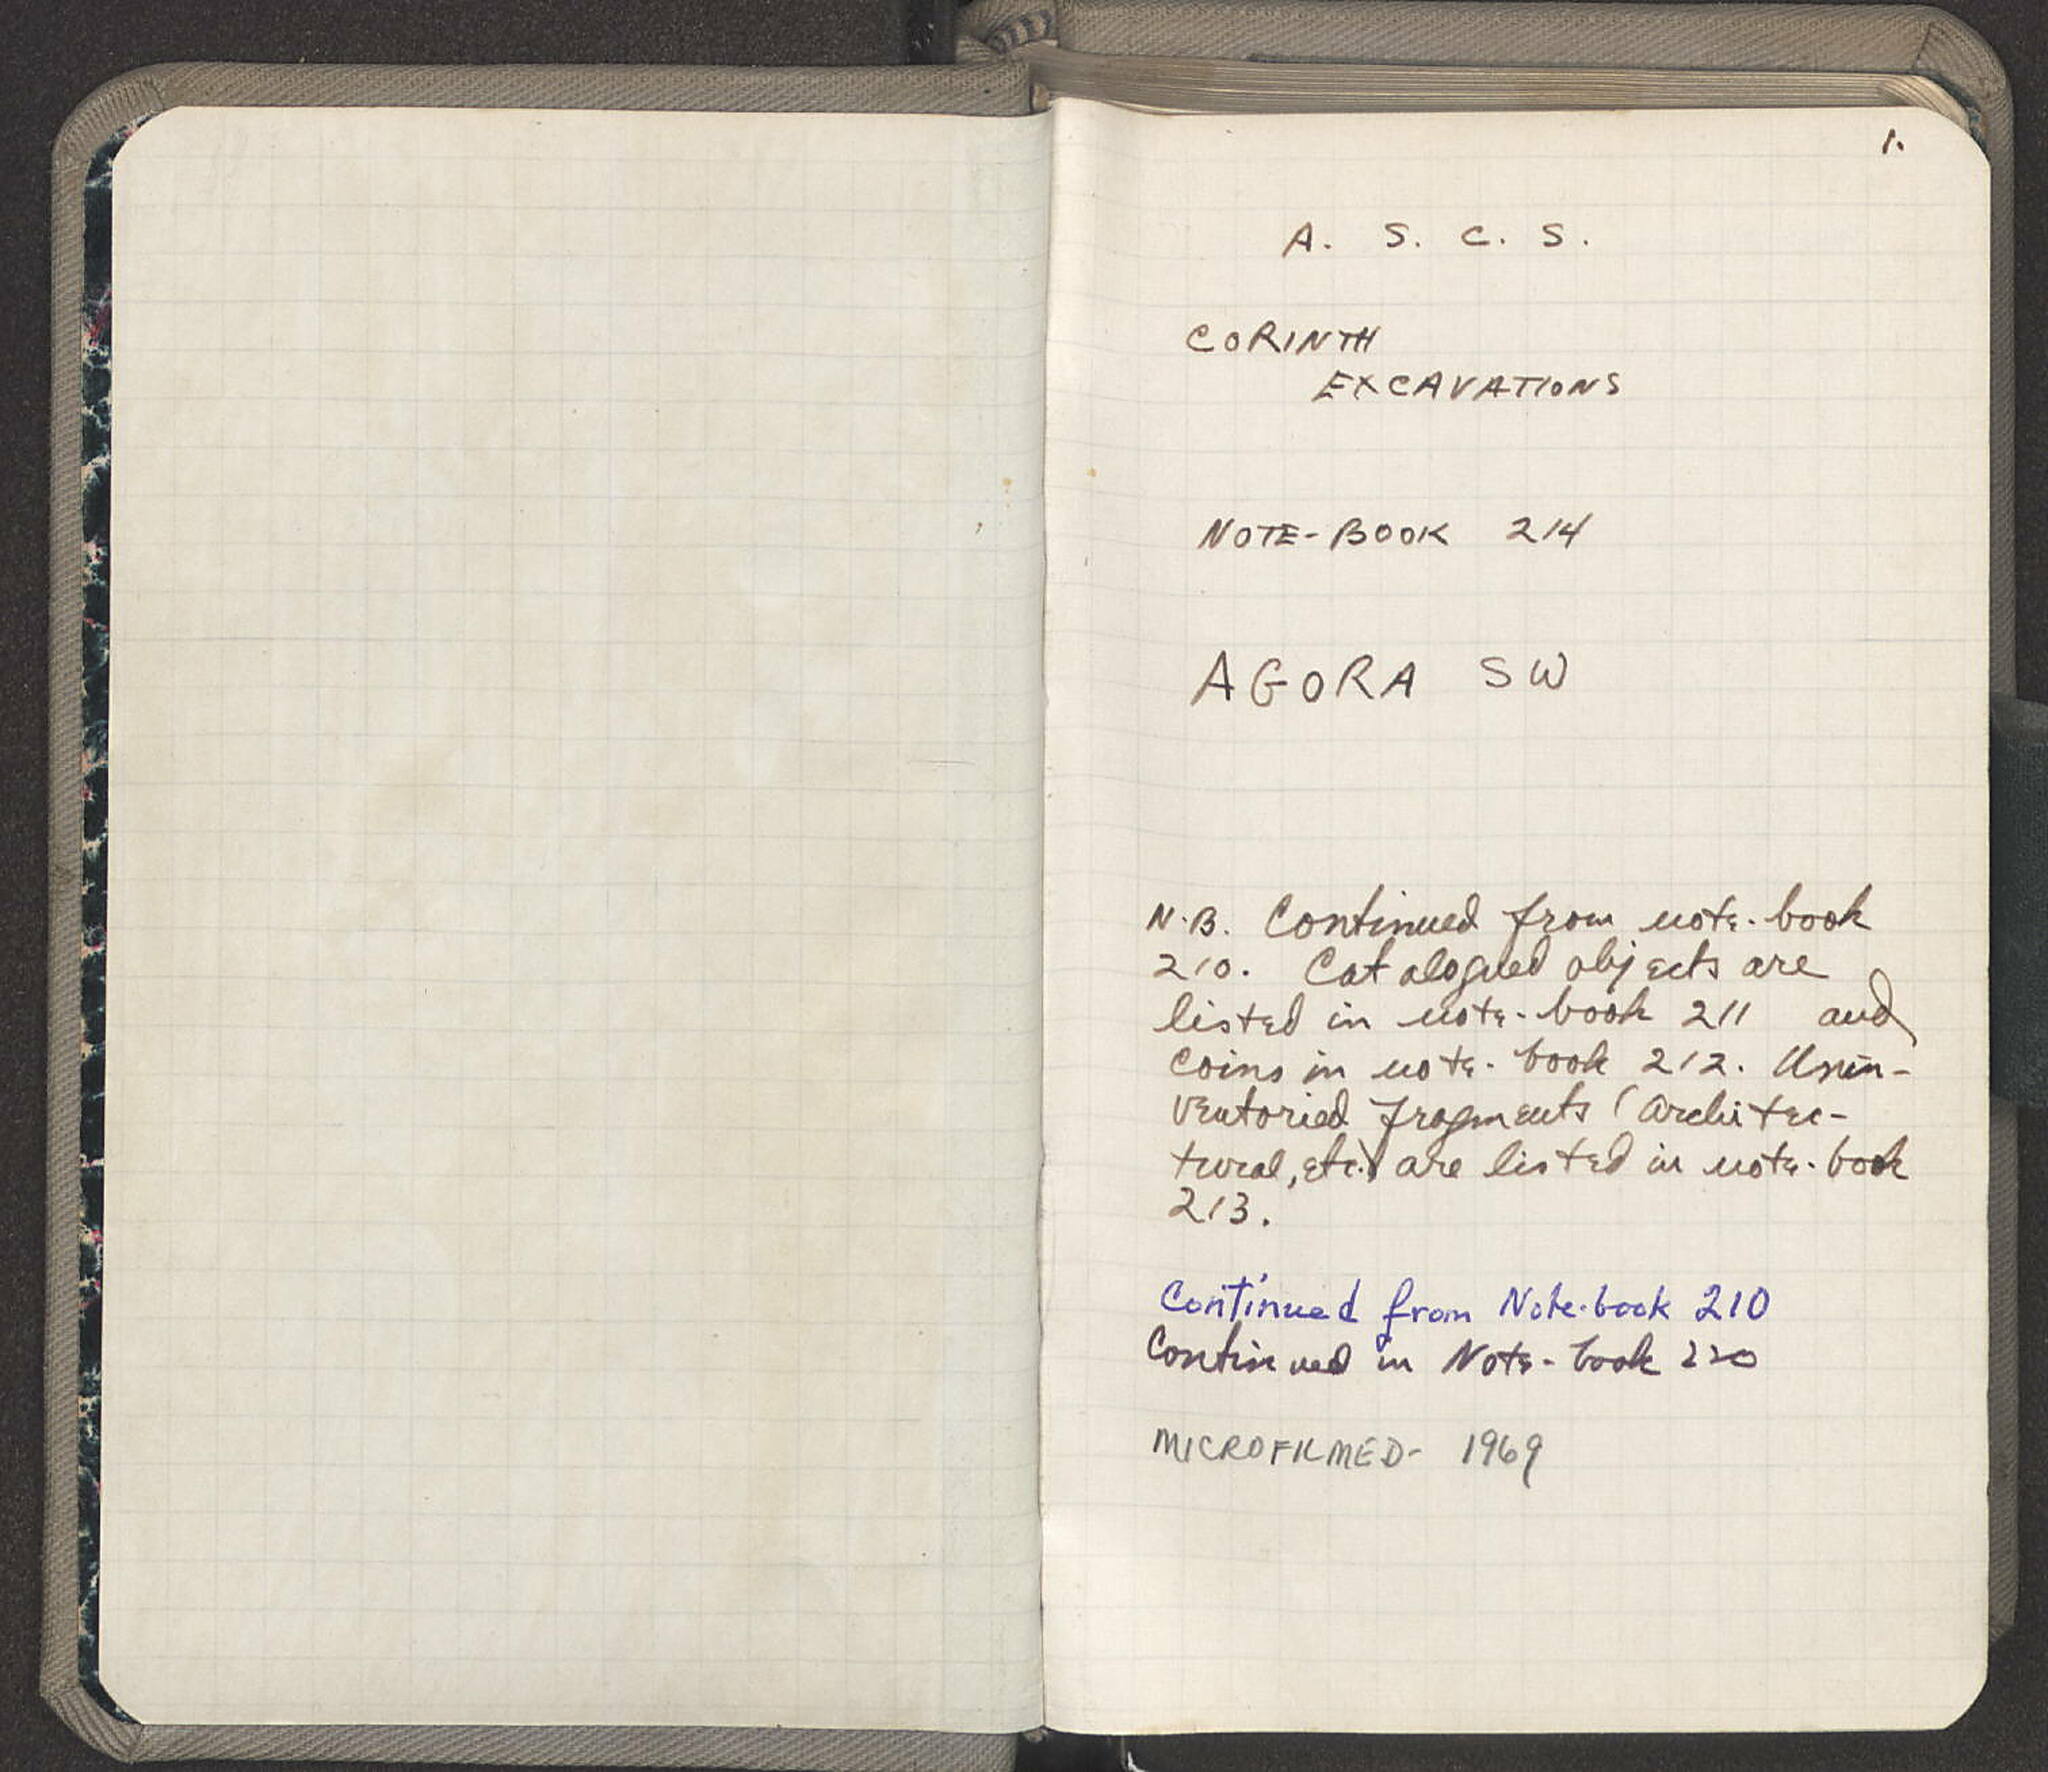 1.
A. S. C. S.
CORINTH
EXCAVATIONS
NOTE-BOOK 214
AGORA SW
N.B. Continued from note-book
210. Catalogued objects are
listed in note-book 211 and
coins in note-book 212. Unin-
ventoried fragments (architec-
tural, etc.) are listed in note-book
213.
Continued from Note-book 210
Continued in Note-book 220
MICROFILMED- 1969